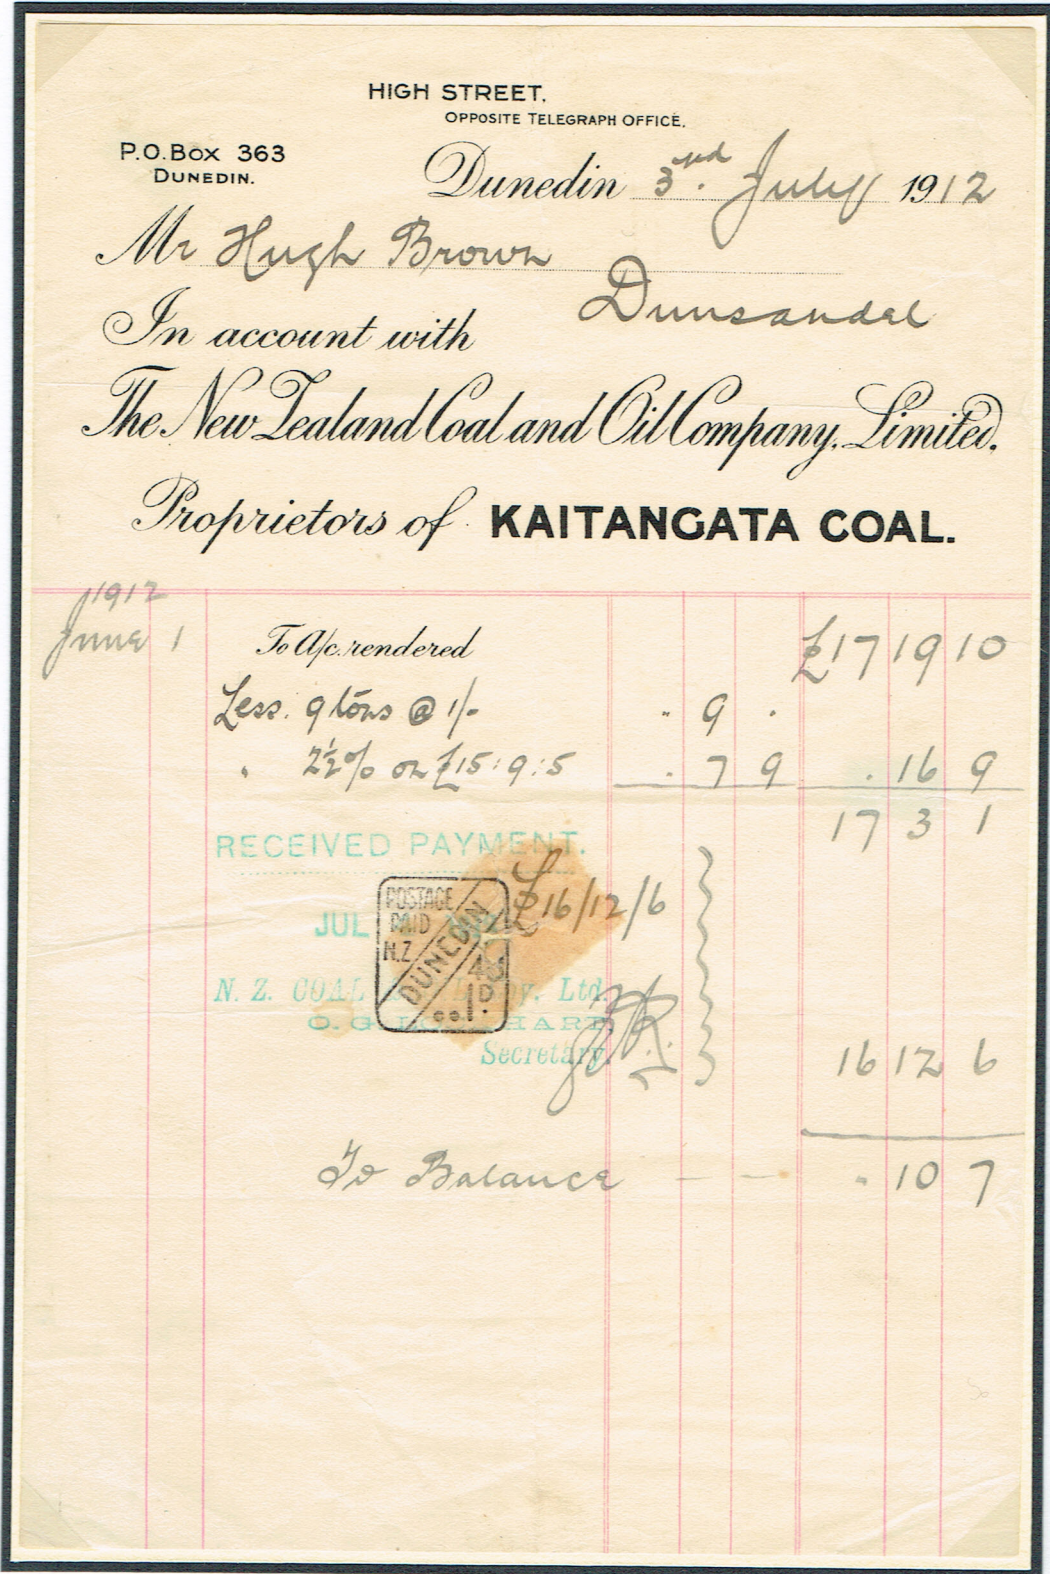 HIGH STREET.
OPPOSITE TELEGRAPH OFFICE.
P.O. BOX 363
DUNEDIN.
Dunedin 3rd. July 1912
Mr Hugh Brown
Dunsandel
In account with
The New Zealand Coal and Oil Company, Limited.
Proprietors of KAITANGATA COAL.
1912
June 1 To A/c. rendered £17 19 10
Less. 9 tons @ 1/- . 9 .
" 2½% on £15:9:5 . 7 9 . 16 9
17 3 1
RECEIVED PAYMENT.
£16/12/6
JUL
POSTAGE
PAID
N.Z.
DUNEDIN
1D.
N. Z. COAL Ltd.
O. G. HART
Secretary.
16 12 6
To Balance - - . 10 7